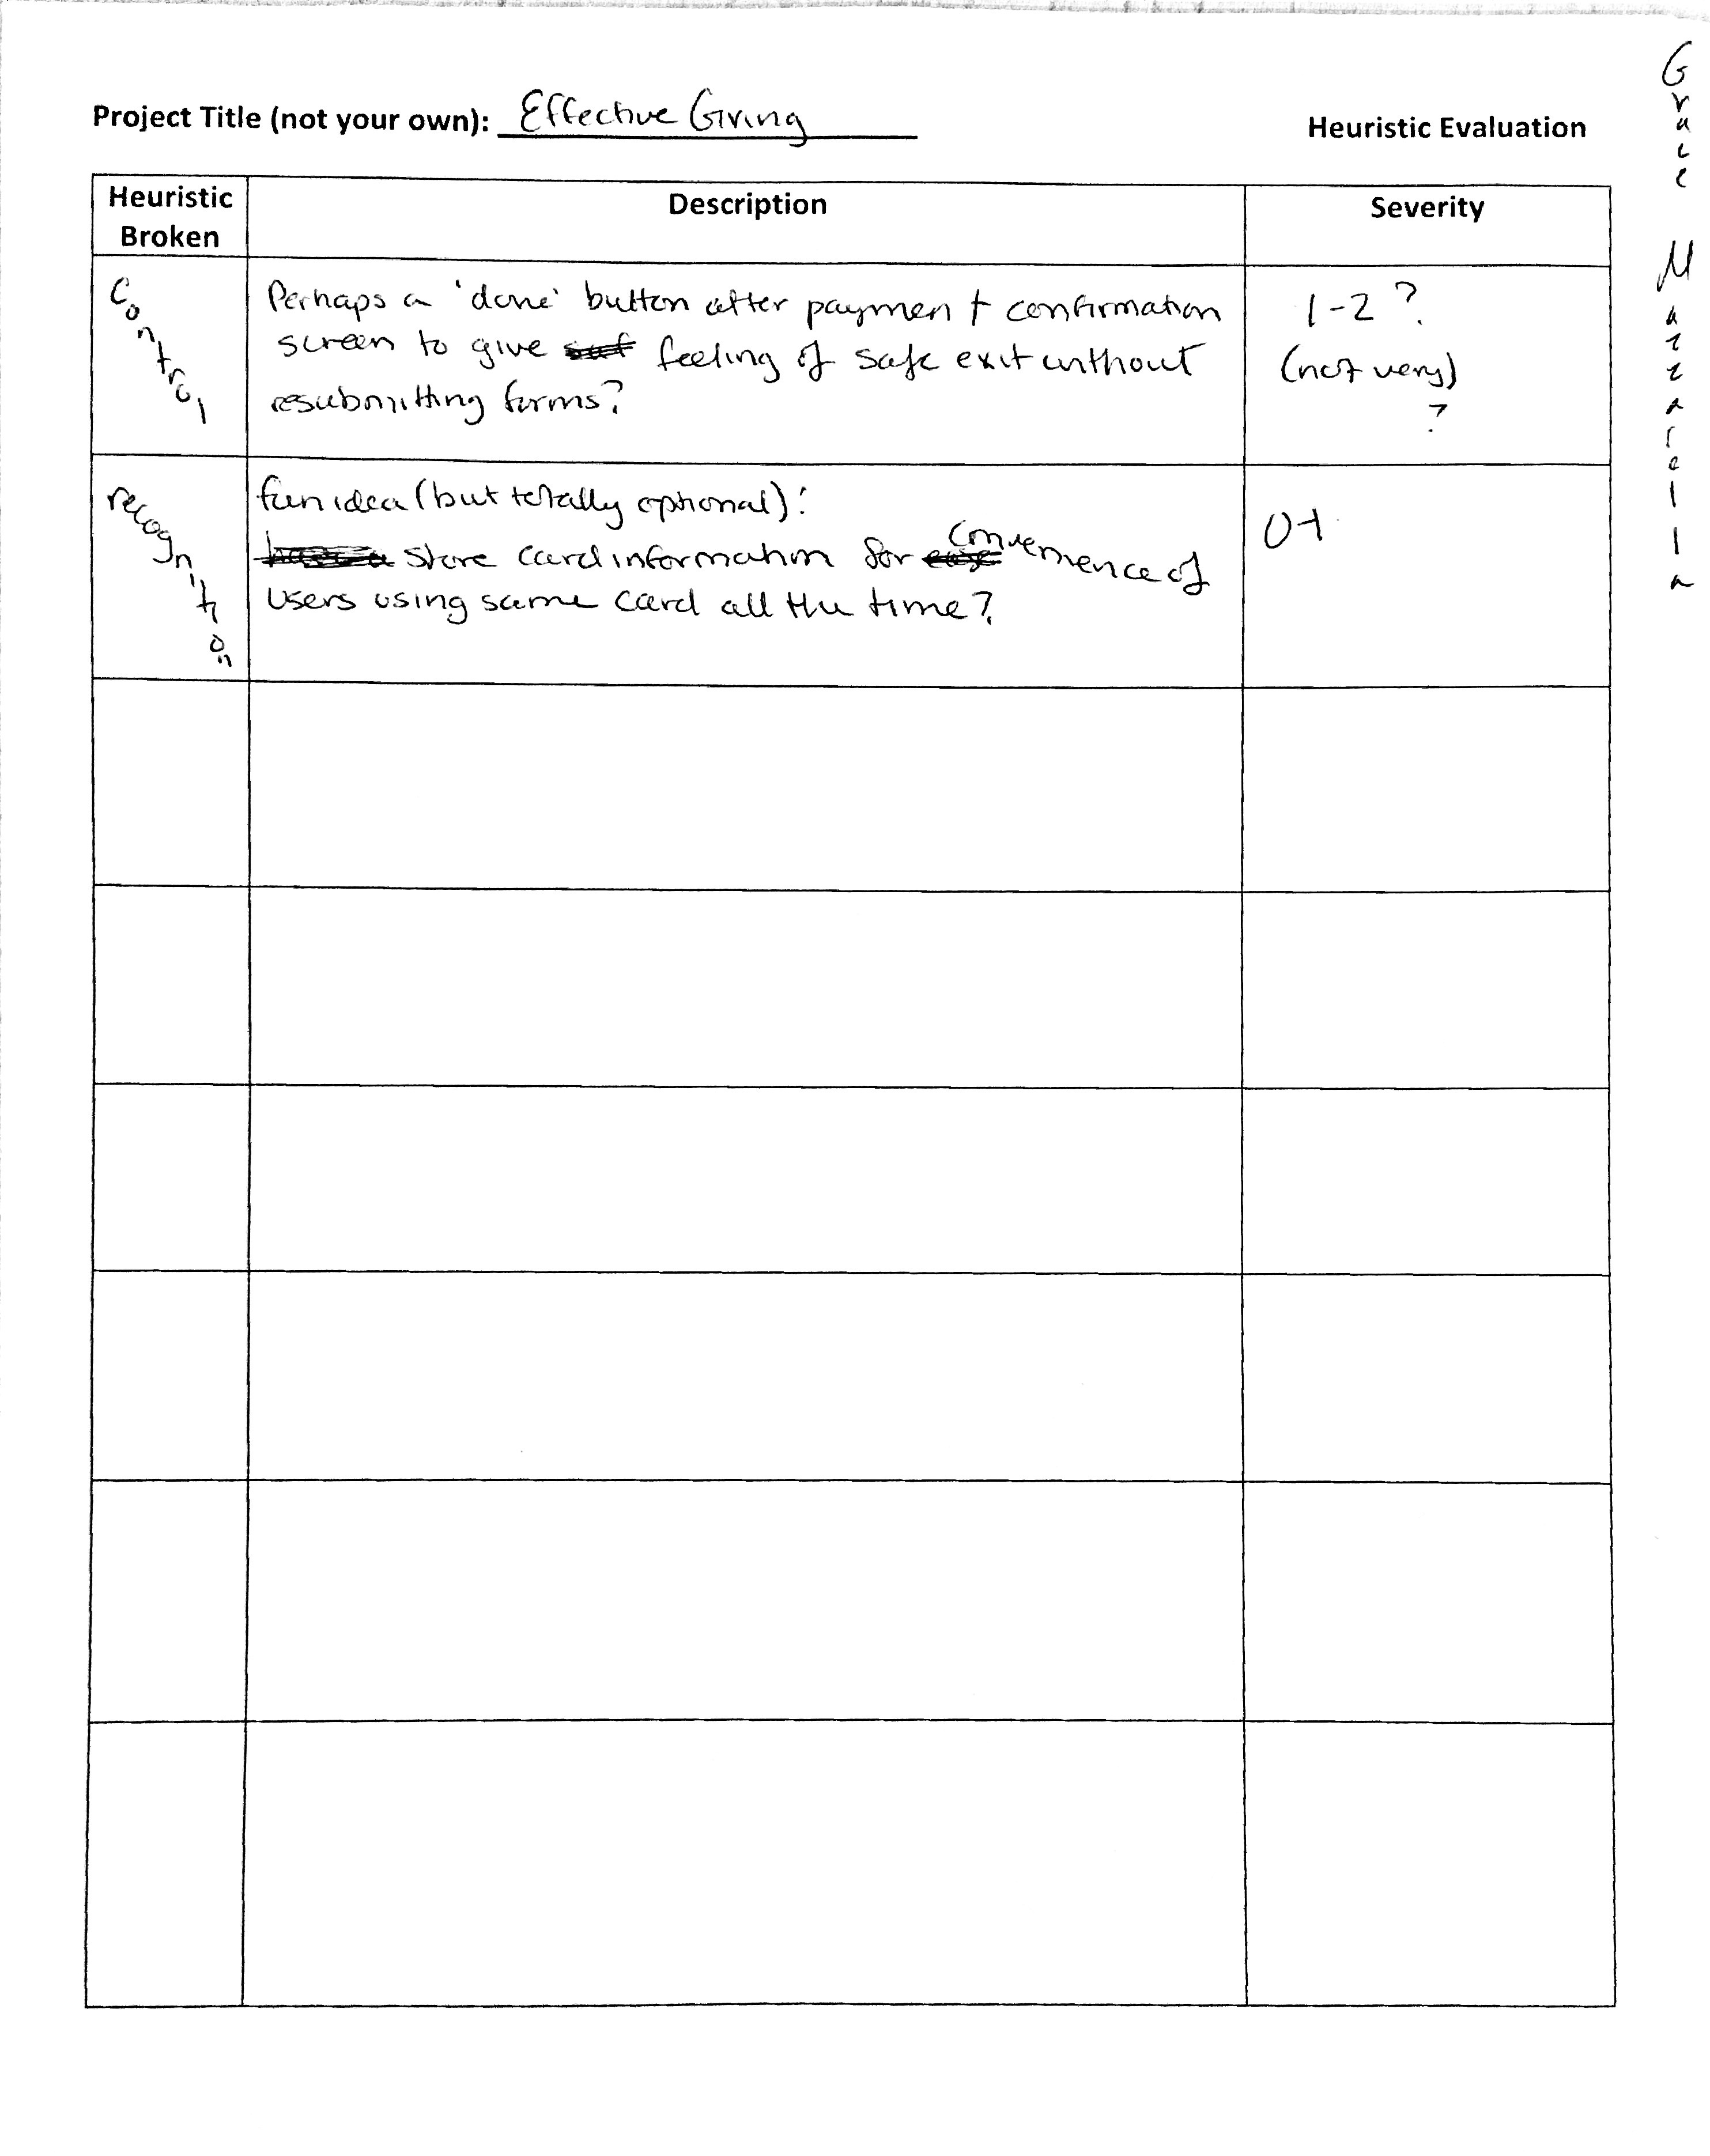 Project Title (not your own): Effective Giving
Heuristic Evaluation
Grace Mazzarella
Heuristic
Broken
Description
Severity
Control
Perhaps a 'done' button after payment + confirmation
screen to give feeling of safe exit without
resubmitting forms?
1-2?
(not very)
?
recognition
fun idea (but totally optional):
store card information for convenience of
users using same card all the time?